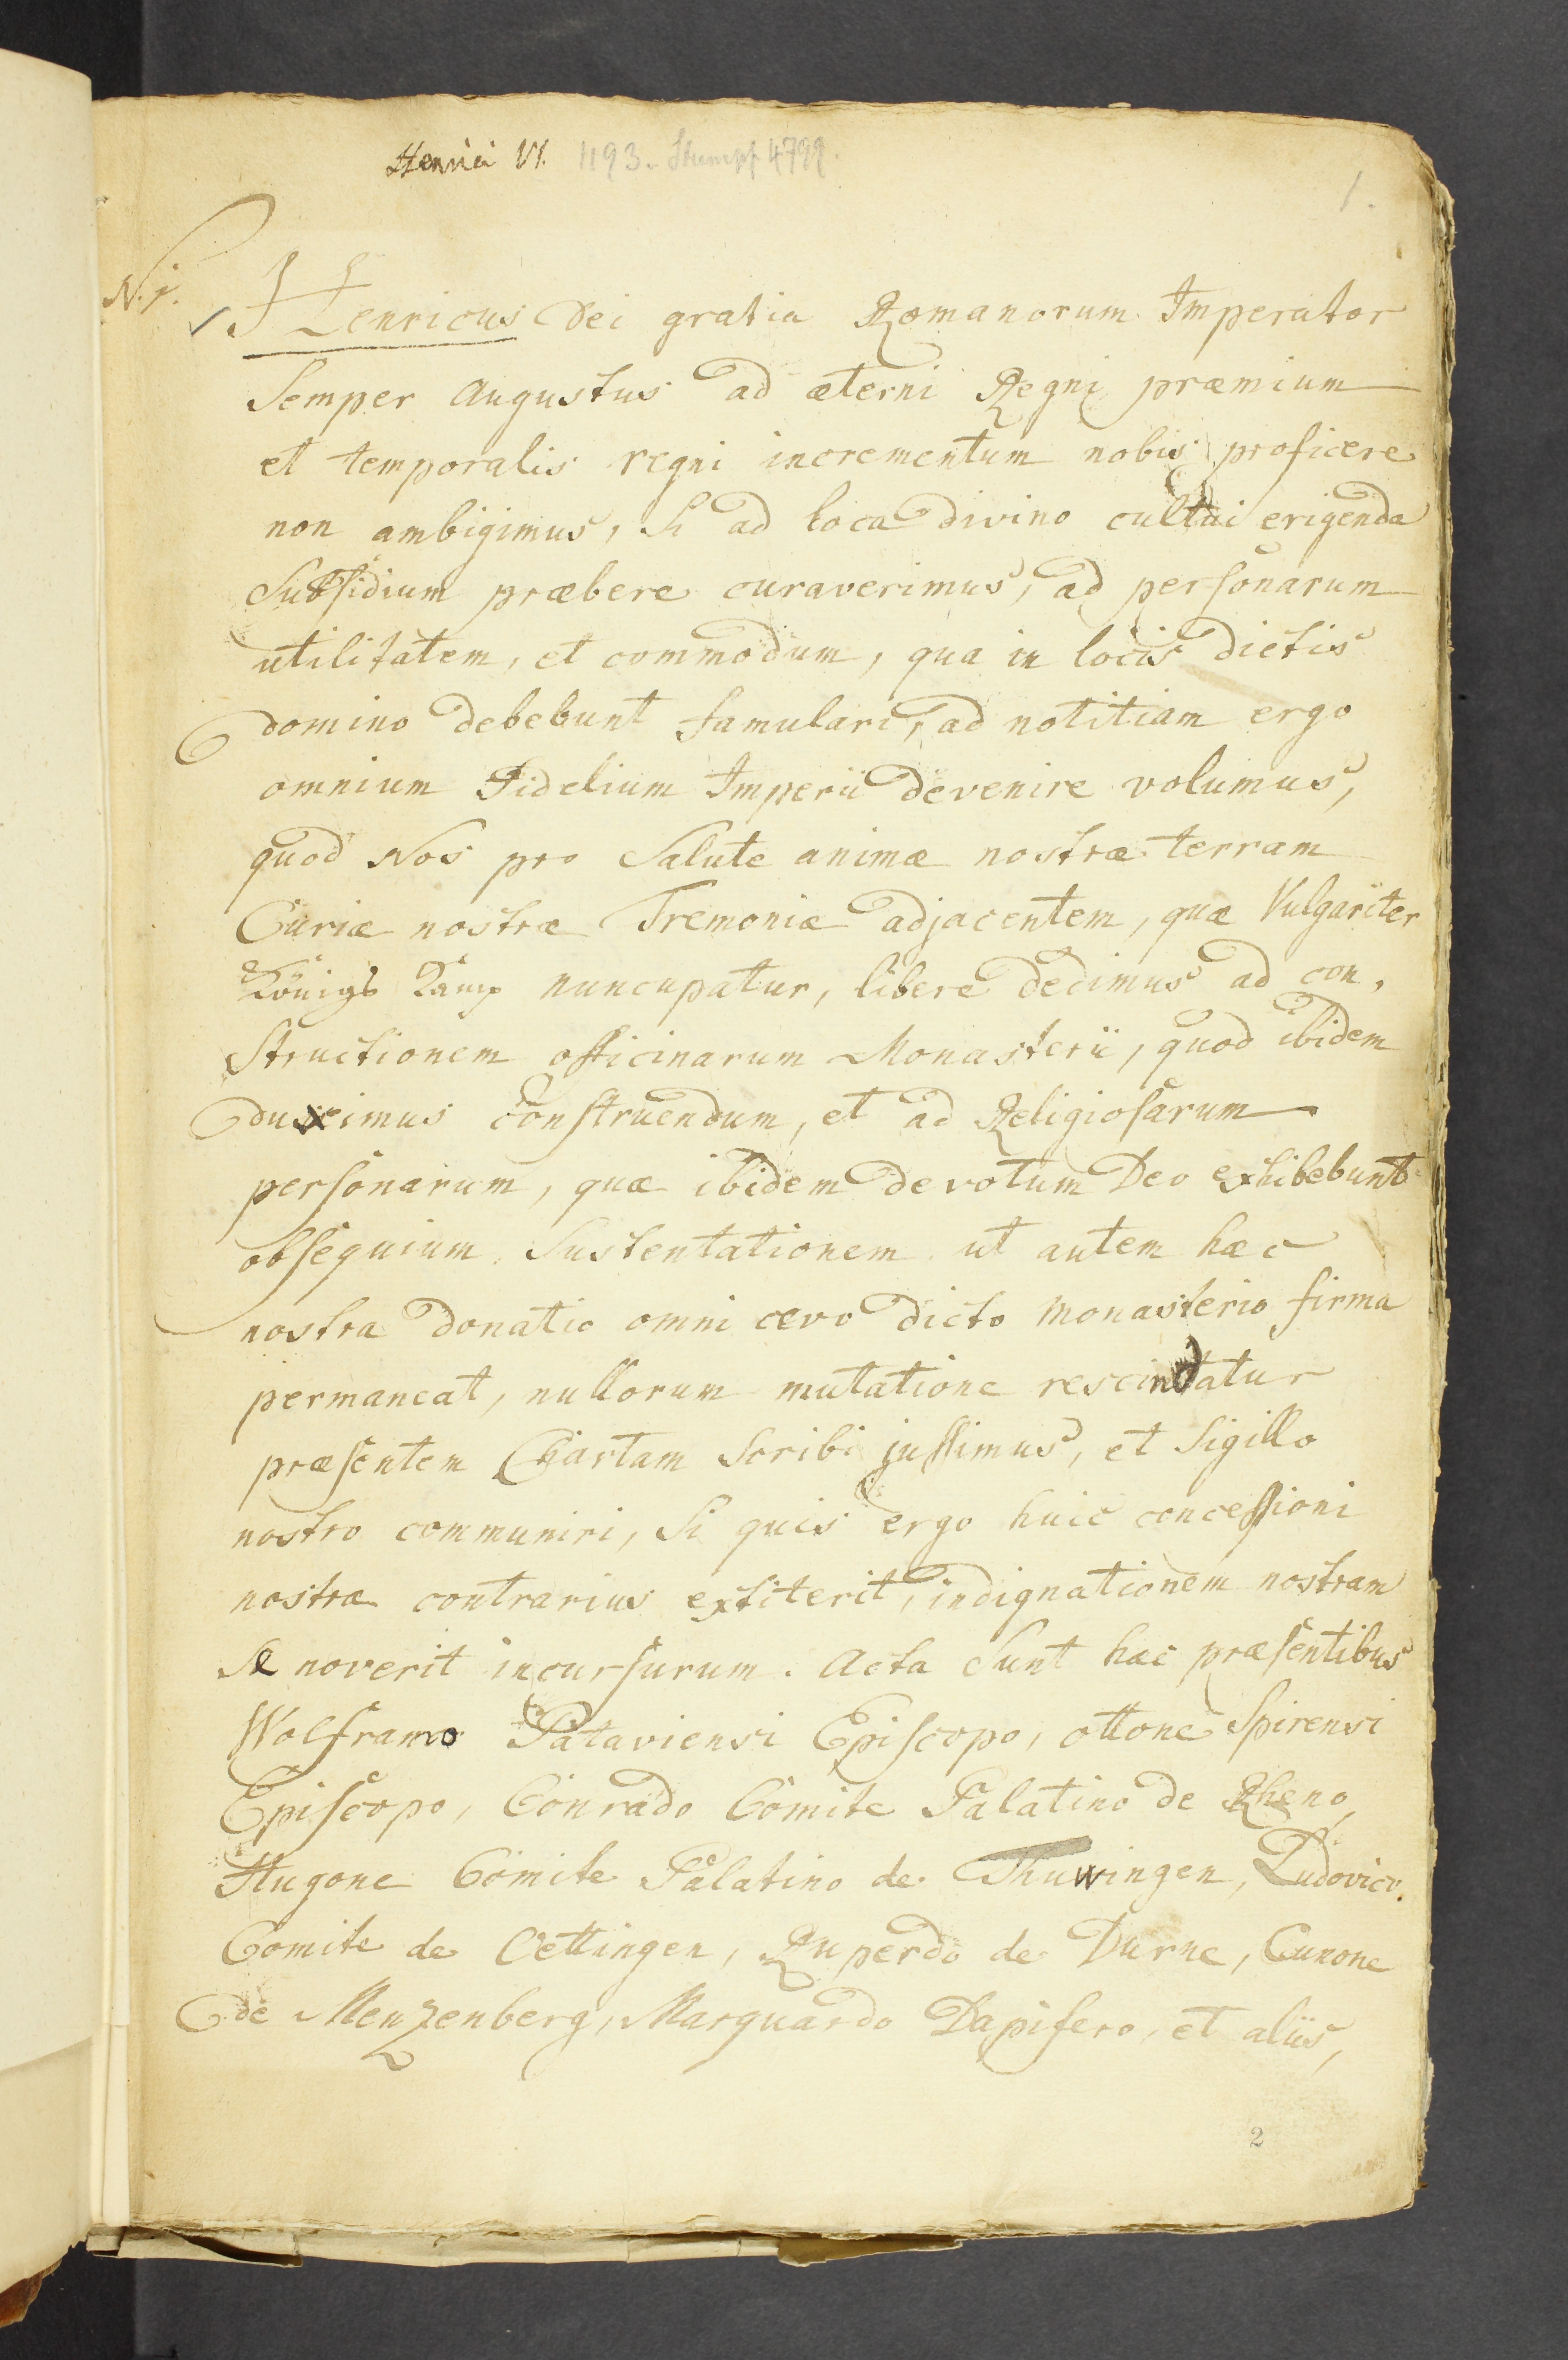 Henrici VI. 1193. Stumpf 4799.
1.
N. 1.
Henricus Dei gratia Romanorum Imperator
Semper Augustus ad æterni Regni præmium
et temporalis regni incrementum nobis proficere
non ambigimus, Si ad loca divino cultui erigenda
Subsidium præbere curaverimus, ad personarum
utilitatem, et commodum, qua in locis dictis
domino debebunt famulari, ad notitiam ergo
omnium Fidelium Imperii devenire volumus,
quod Nos pro Salute animæ nostræ terram
Curiæ nostræ Tremoniæ adjacentem, quæ Vulgariter
Königs Kamp nuncupatur, libere dedimus ad con,
Structionem officinarum Monasterii, quod ibidem
duximus construendum, et ad Religiosarum
personarum, quæ ibidem devotum Deo exhibebunt
obsequium Sustentationem ut autem hæc
nostra donatio omni ævo dicto Monasterio firma
permaneat, nullorum mutatione rescindatur
præsentem Chartam Scribi jussimus, et Sigillo
nostro communiri, Si quis ergo huic concessioni
nostræ contrarius extiterit, indignationem nostram
Se noverit incursurum. Acta Sunt hæc præsentibus
Wolframo Pataviensi Episcopo, ottone Spirensi
Episcopo, Conrado Comite Palatino de Rheno,
Hugone Comite Palatino de Thuwingen, Ludovico.
Comite de Oettingen, Ruperdo de Durne, Cunone
de Menzenberg, Marquardo Dapifero, et aliis,
2